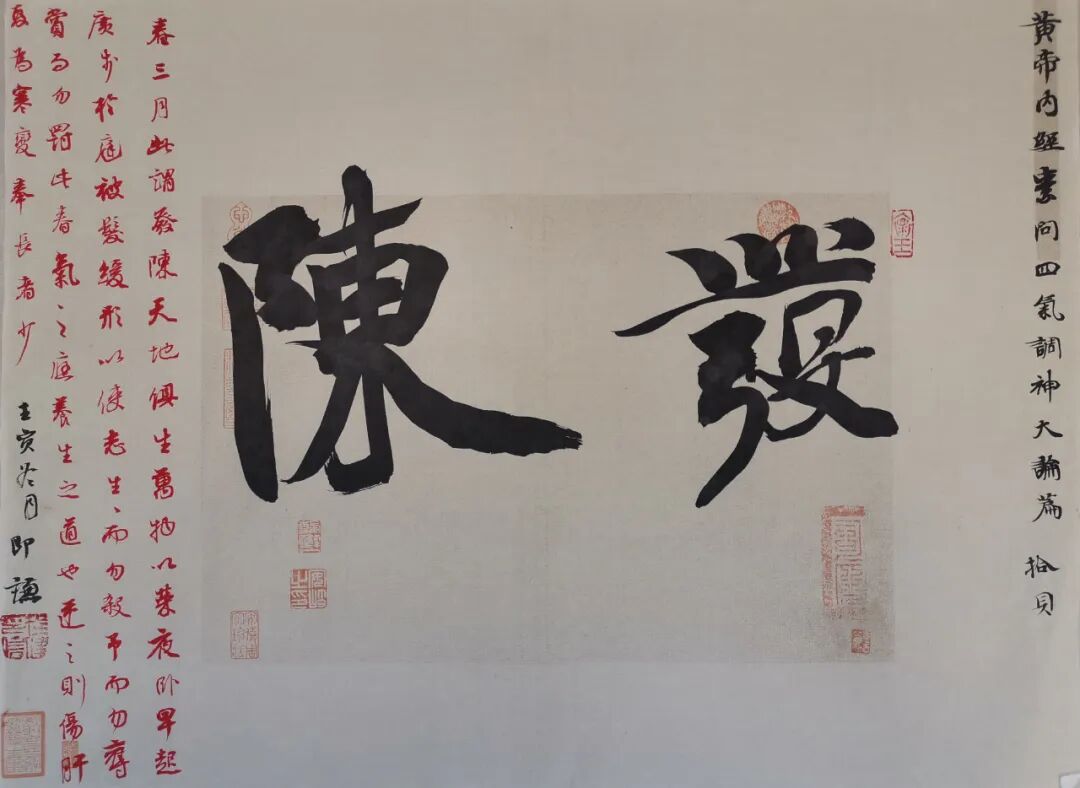 黄帝内經素問四氣調神大論篇 拾貝
發陳
春三月此謂發陳天地俱生萬物以榮夜卧早起
廣步於庭被髮緩形以使志生〻而勿殺予而勿奪
賞而勿罰此春氣之應養生之道也逆之則傷肝
夏為寒變奉長者少 壬寅冬月即謙